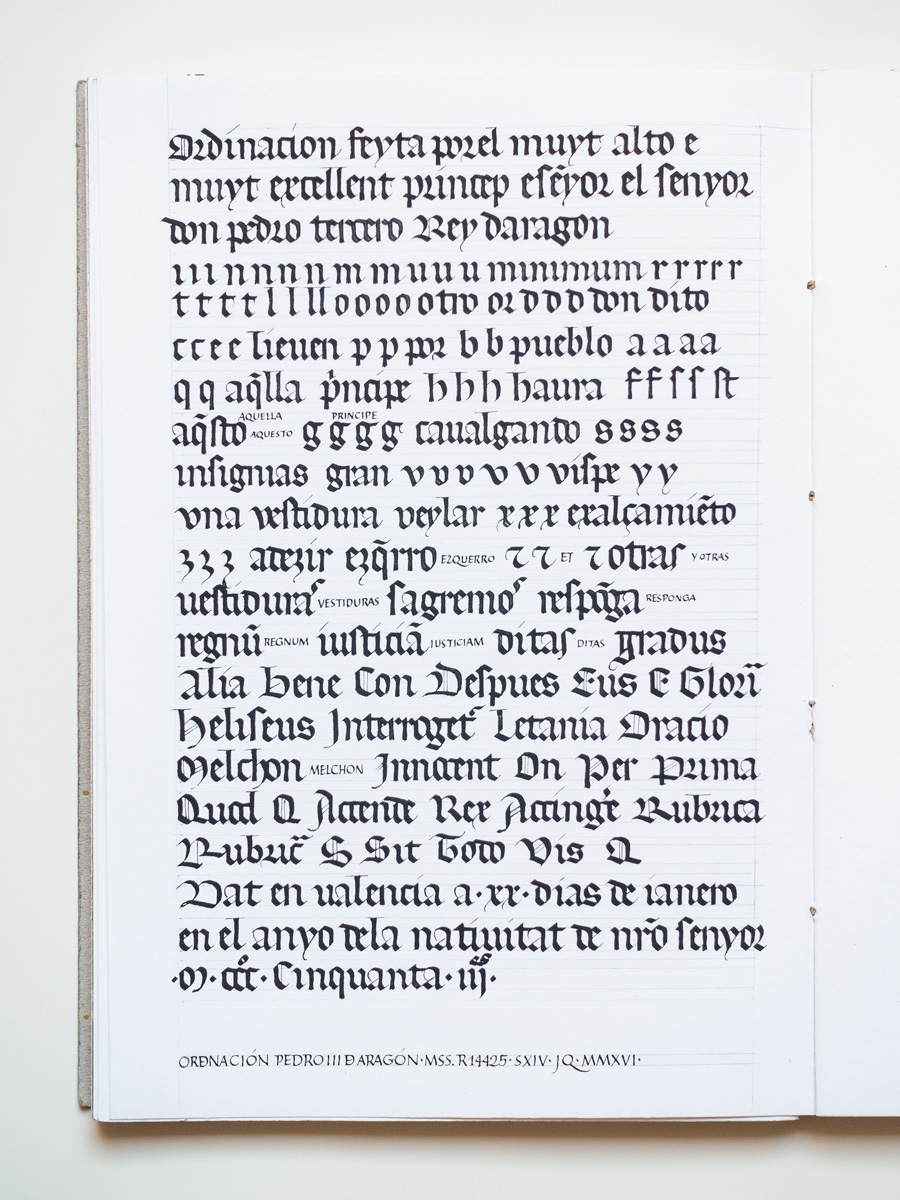 Ordinacion feyta porel muyt alto e
muyt excellent princep eseȳor el senyor
don pedro tercero Rey daragon
ı ı ı n n n n n m m u u u minimum r r r r r
t t t t l l l l o o o o o otro or d d d don dito
c c e e lieuen p p p por b b pueblo a a a a
q q aq̃lla p̍ncipe h h h haura f f ſ ſ ſt
AQUELLA PRINCIPE
aq̃sto AQUESTO g g g g caualgando s s s s
insignias gran v v v v v vispe y y
vna vestidura veylar x x x exalçamiẽto
3 3 3 atezir ezq̃rro EZQUERRO ⁊ ⁊ ET ⁊ otras Y OTRAS
vestiduras VESTIDURAS sagremos respõga RESPONGA
regnũ REGNUM iusticiã JUSTICIAM ditas DITAS gradus
Alia Bene Con Despues Eus E Glorĩ
Heliseus Interroget Letania Oracio
Melchon MELCHON Innocent On Per Prima
Quod Q Accende Rex Accinge Rubrica
Rubric̃ S Sit Todo Vis Q
Dat en valencia a·xx·dias de ianero
en el anyo dela natiuitat de nr̃o senyor
·M·ccc·Cinquanta·iij·
ORDNACIÓN PEDRO III D ARAGÓN·MSS.R14425·SXIV·JQ·MMXVI·